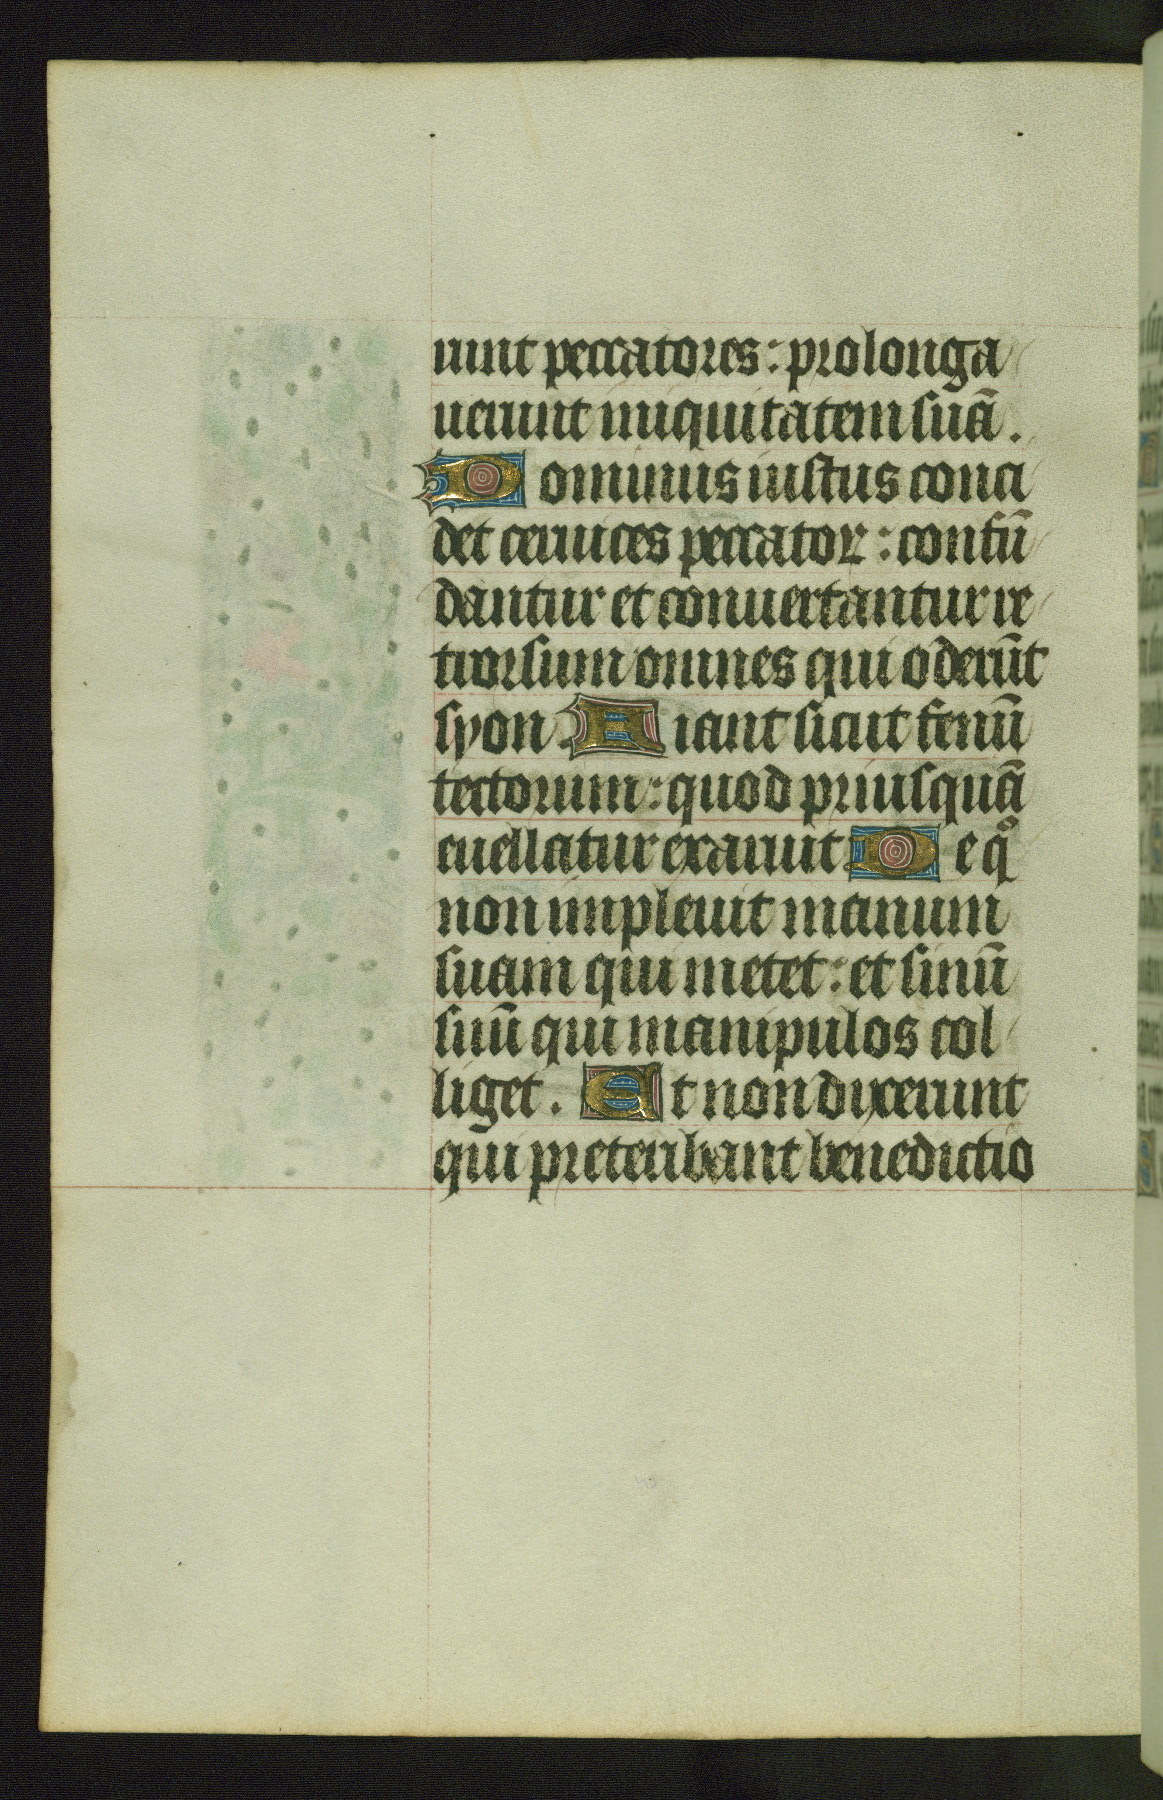 runt peccatores: prolonga
uerunt iniquitatem suā.
Dominus iustus conci
det ceruices peccatoꝝ: confū
dantur et conuertantur re
trorsum omnes qui oderūt
syon. Fiant sicut fenū
tectorum: quod priusquā
euellatur exaruit De qͦ
non impleuit manum
suam qui metet: et sinū
suū qui manipulos col
liget. Et non dixerunt
qui preteribant benedictio